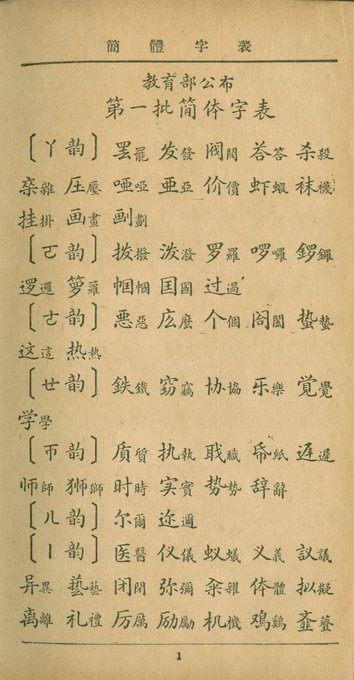 簡體字表
教育部公布
第一批简体字表
〔ㄚ韵〕 罢罷 发發 阀閥 荅答 杀殺
杂雜 压壓 哑啞 亚亞 价價 虾蝦 袜襪
挂掛 画畫 劃
〔ㄛ韵〕 拨撥 泼潑 罗羅 啰囉 锣鑼
逻邏 箩籮 帼幗 国國 过過
〔ㄜ韵〕 恶惡 么麼 个個 閤 蛰蟄
这這 热熱
〔ㄝ韵〕 鉄鐵 窃竊 协協 乐樂 覚覺
学學
〔ㄭ韵〕 质質 执執 职職 帋紙 迟遲
师師 狮獅 时時 实實 势勢 辞辭
〔ㄦ韵〕 尔爾 迩邇
〔ㄧ韵〕 医醫 仪儀 蚁蟻 义義 议議
异異 藝 闭閉 弥彌 籴糴 体體 拟擬
离離 礼禮 厉厲 励勵 机機 鸡鷄 齑
1